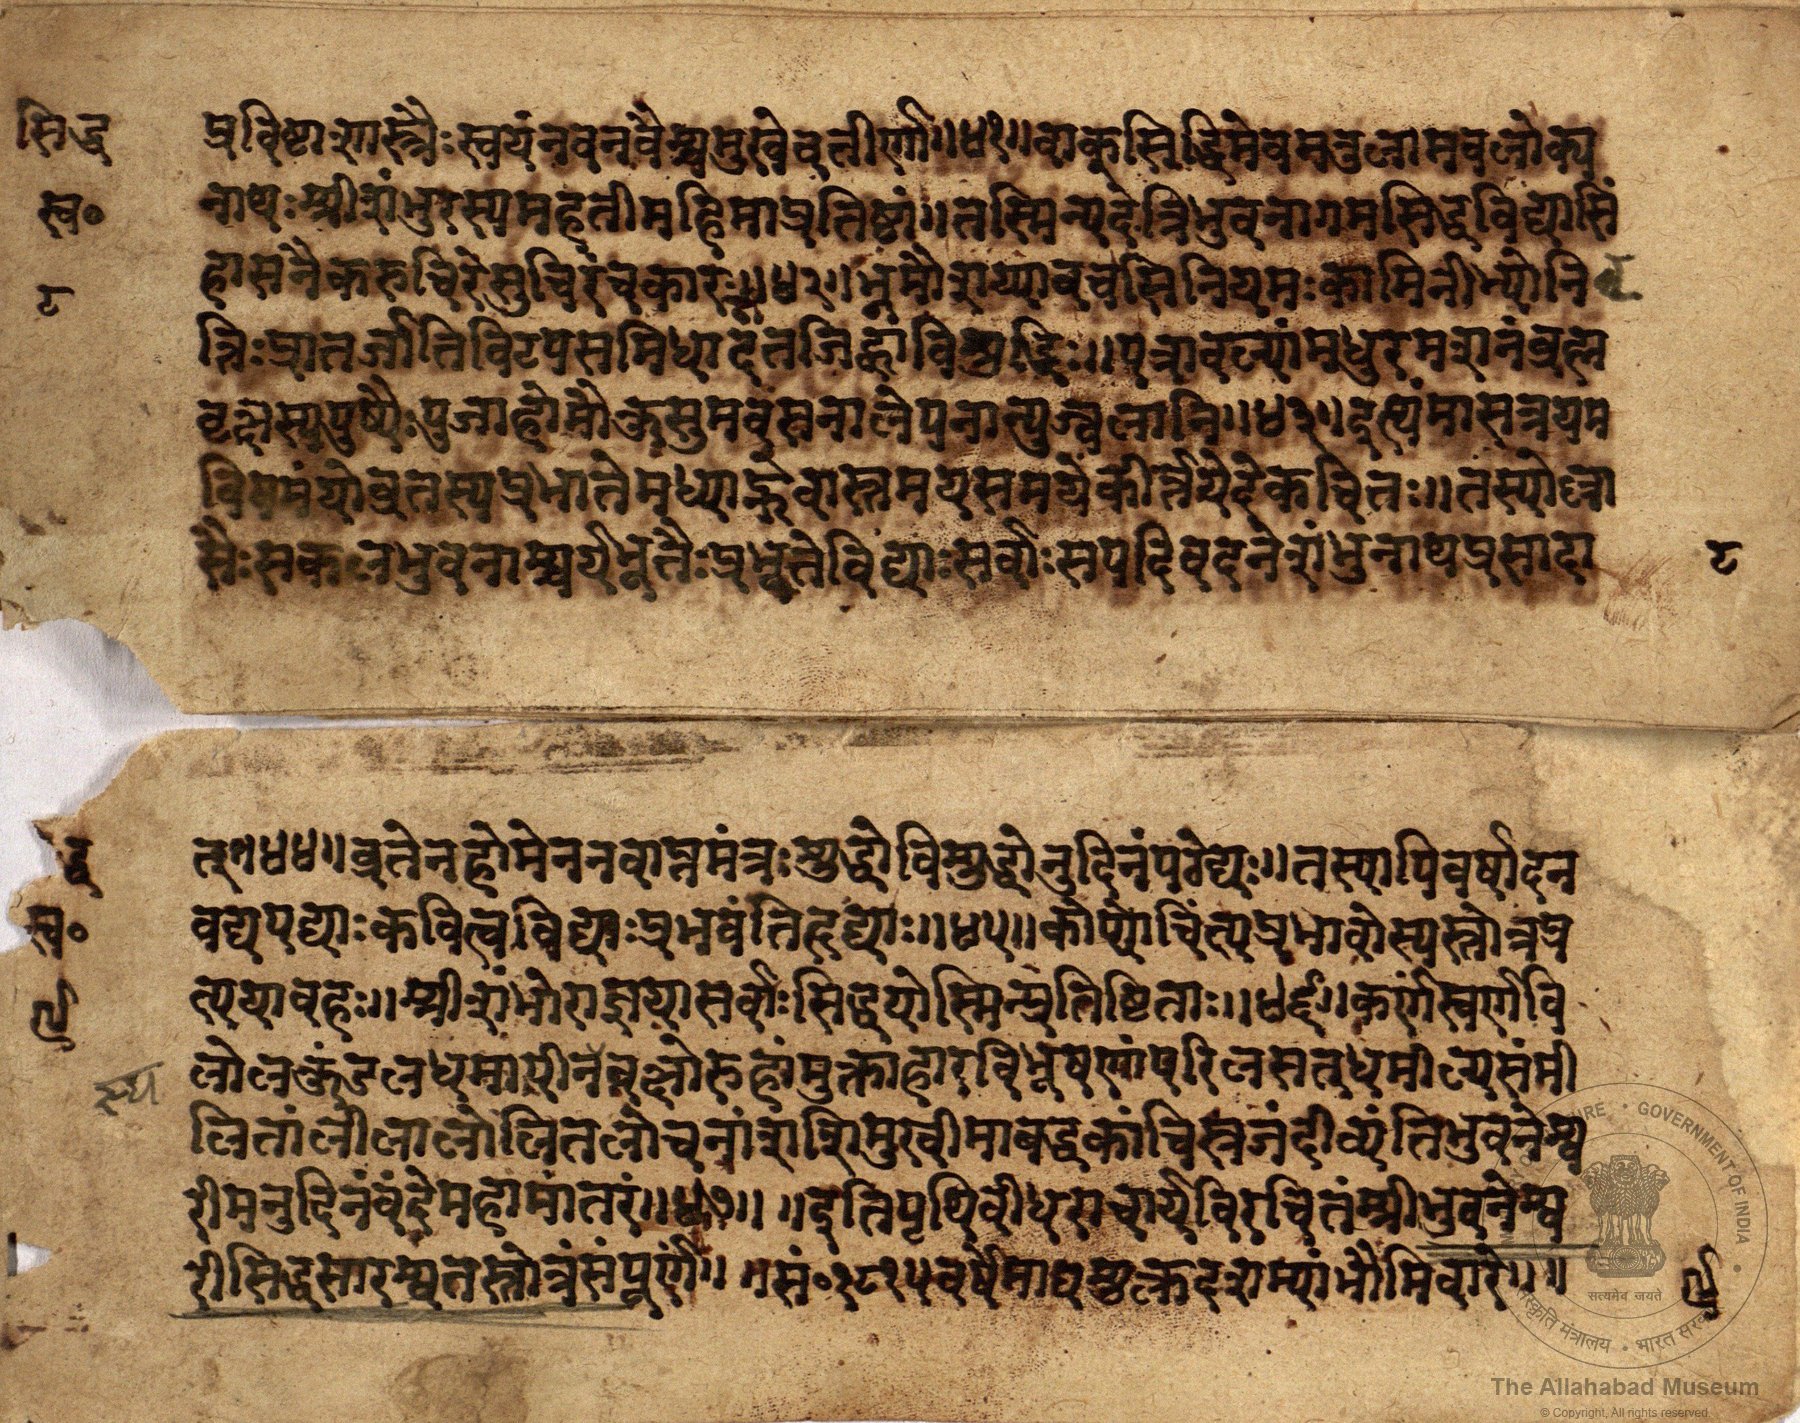 सिद्ध
स्व०
८
प्रविष्टाशास्त्रैःस्वयंनवनवैश्चमुखेवतीर्णा॥४१॥वाक्सिद्धिमेवमतुलामवलोक्य
नाथःश्रीशंभुरस्यमहतीमहिमाप्रतिष्टां॥तस्मिन्पदेत्रिभुवनागमसिद्धविद्यासिं
हासनैकरुचिरेसुचिरंचकारः॥४२॥भूमौशय्यावचसिनियमःकामिनीभ्योनि
त्तिःप्रातर्जातिविटपसमिधादंतजिह्वाविशुद्धिः॥पत्रावल्यांमधुरमशनंब्रह्म
वृक्षस्यपुष्पैःपुजाहोमौकुसुमवस्त्रनालेपनात्युज्वलानि॥४३॥इत्थंमासत्रयम
विषमंयोव्रतस्यप्रभातेमध्याह्नेवास्तमयसमयेकीर्त्तयेदेकचित्तः॥तस्योल्ला
सैःसकलभुवनाश्चर्यभूतैःप्रभूतेविद्याःसर्वाःसपदिवदनेशंभुनाथप्रसादा
८
द्ध
स्व०
९
त्॥४४॥व्रतेनहोमेननवाप्तमंत्रःशुद्धोविशुद्धोनुदिनंपठेद्यः॥तस्यापिवर्षादन
वद्यपद्याःकवित्वविद्याःप्रभवंतिहृद्याः॥४५॥कोप्यचिंत्यप्रभावोस्यस्तोत्रप्र
त्ययावहः॥श्रीशंभोराज्ञयासर्वाःसिद्धयोस्मिन्प्रतिष्टिताः॥४६॥कर्णस्वर्णवि
लोलकुंडलधरामापीनवक्षोरुहांमुक्ताहारविभूषणांपरिलसत्धमील्यसंमी
लितांलीलालोलितलोचनांशशिमुखीमाबद्धकांचिस्रजंदीव्यंतिभुवनेश्व
रीमनुदिनंवंदेमहामातरं॥४७॥ ॥इतिपृथिवीधराचार्यविरचितंश्रीभुवनेश्व
रीसिद्धसारस्वतस्तोत्रंसंपूर्णं॥ ॥सं०१८१५वर्षेमाघशुक्लदशम्यांभौमिवारे॥ ॥
९
GOVERNMENT OF INDIA
सत्यमेव जयते
संस्कृति मंत्रालय • भारत सरकार
The Allahabad Museum
© Copyright, All rights reserved.